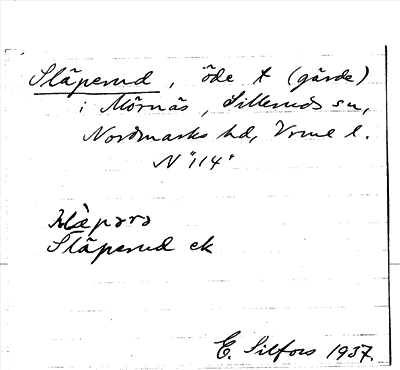 Släperud, öde t (gärde)
i Mörnäs, Silleruds sn,
Nordmarks hd, Vrml l.
N "114"
Släperud ek
E. Silfors 1937.